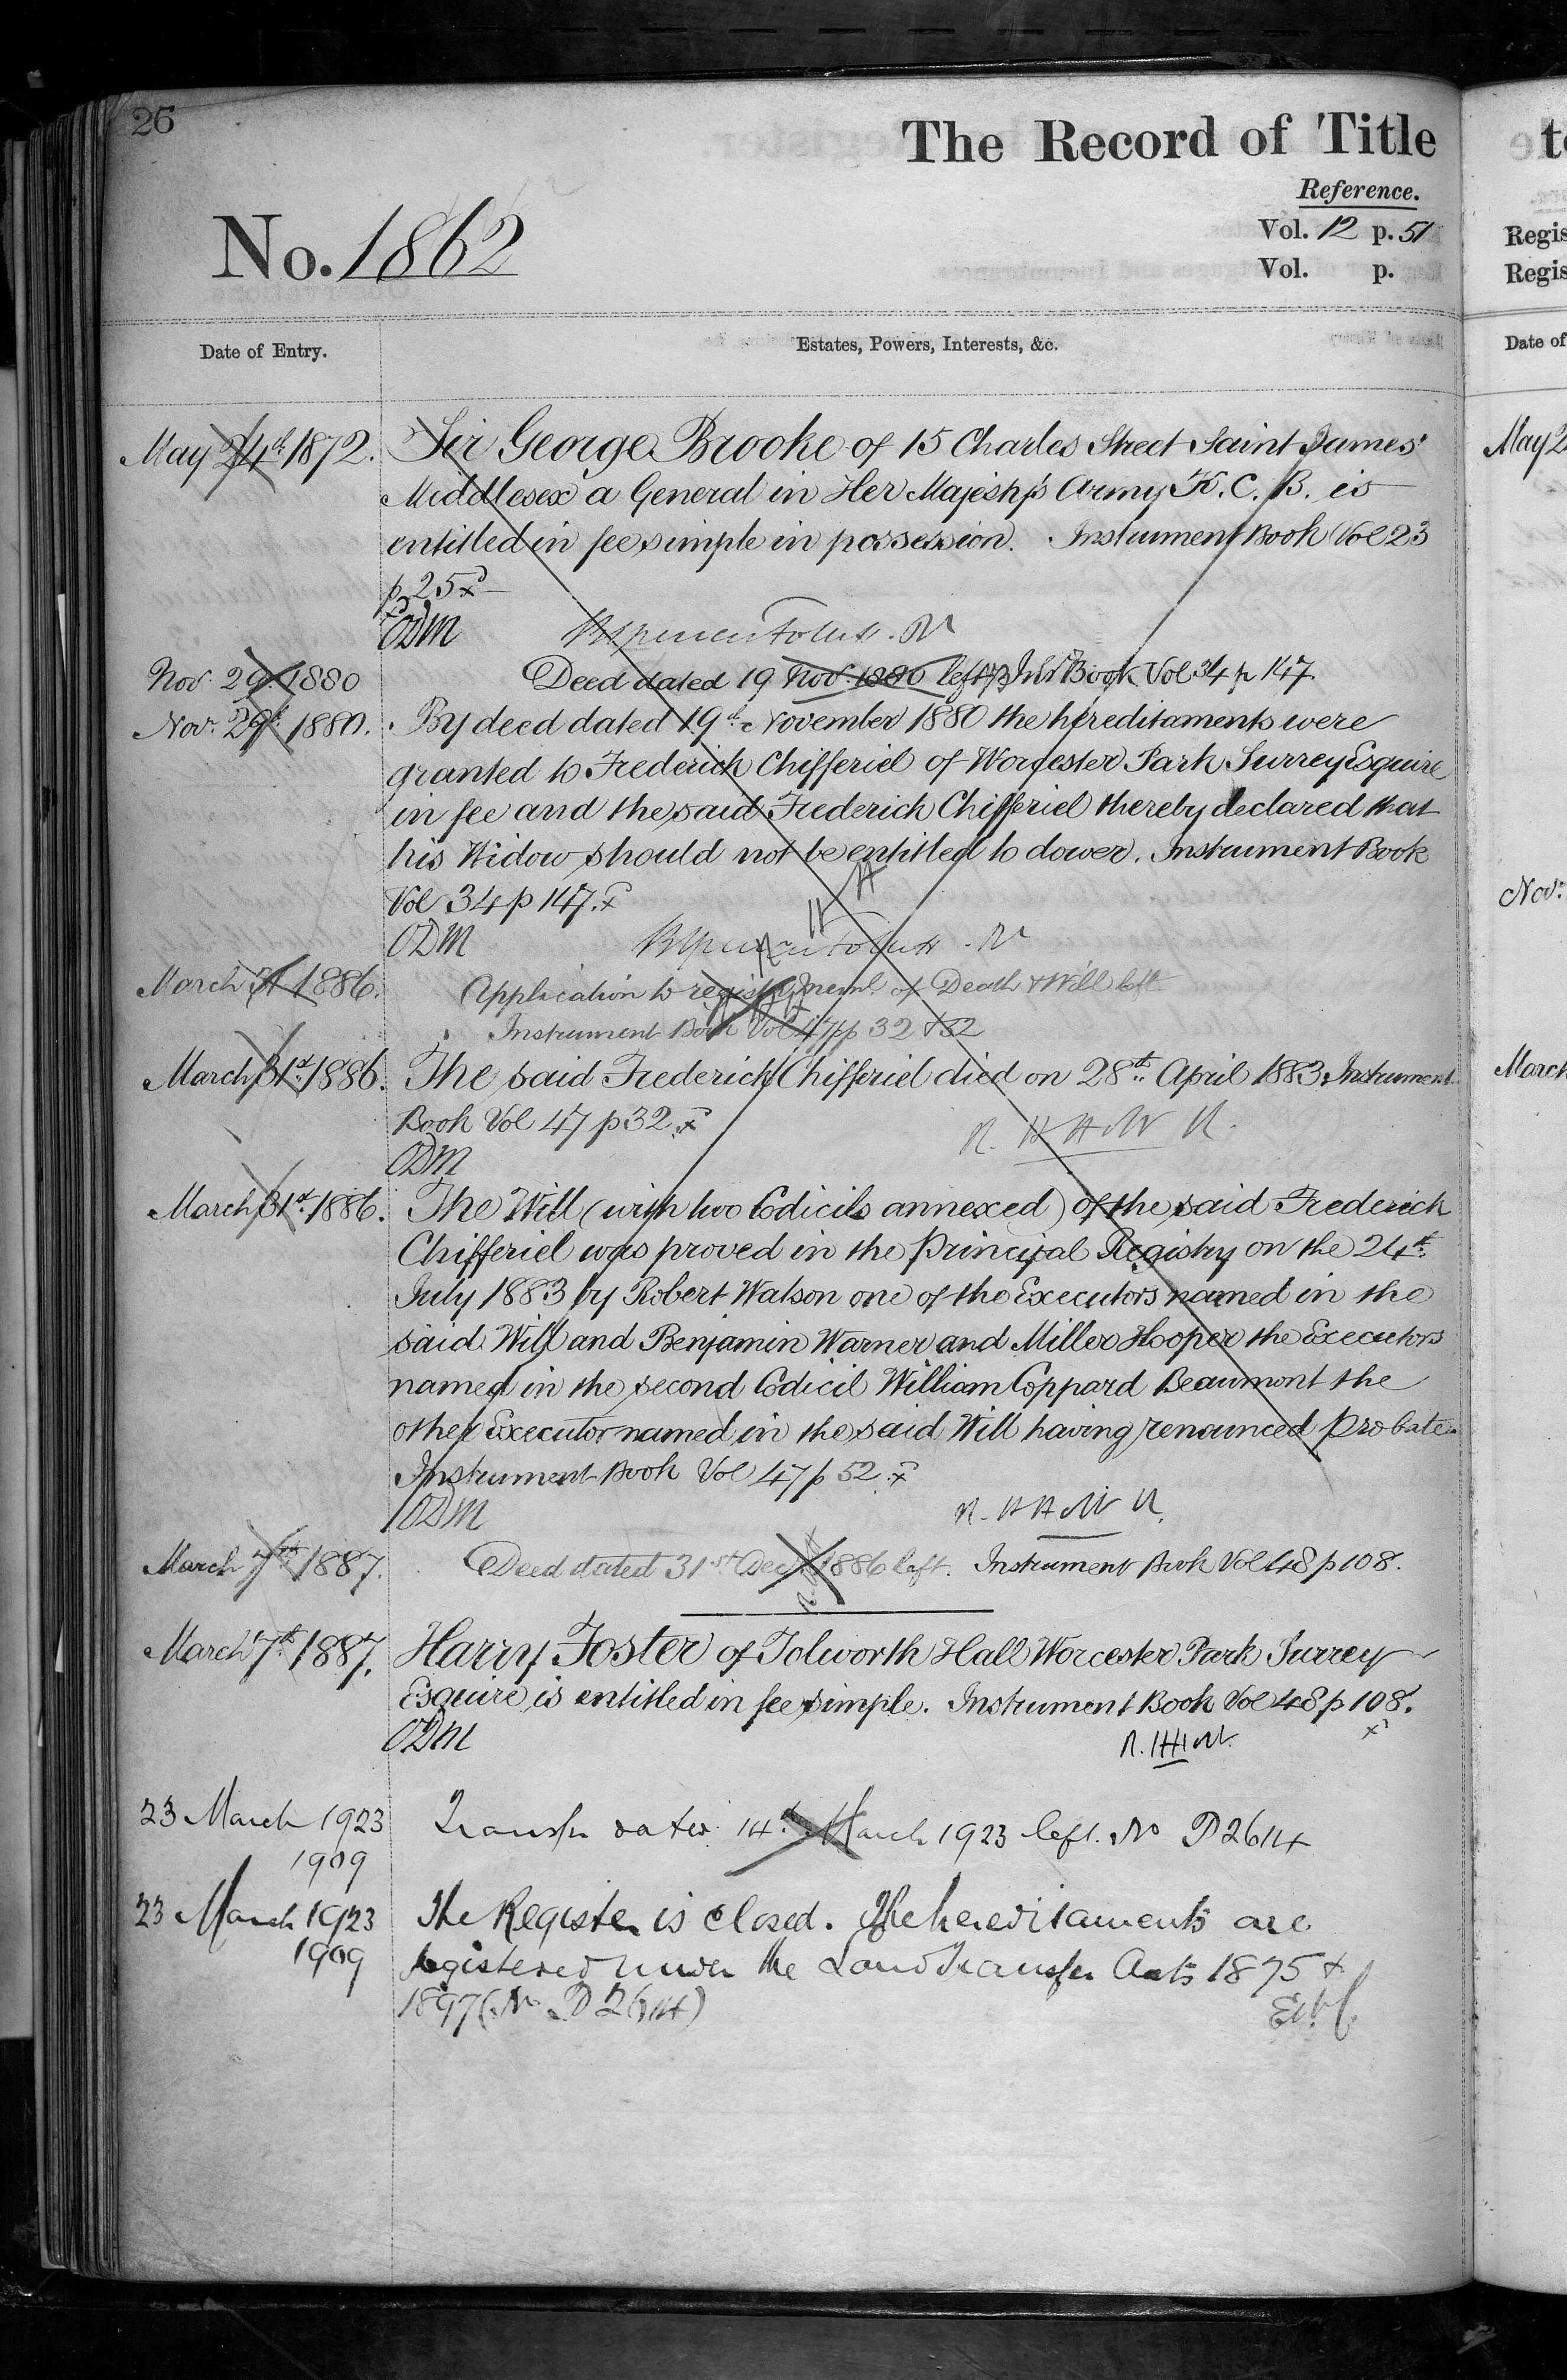 26
The Record of Title
Reference.
No. 1862
Vol. 12 p. 51
Vol. p.
Date of Entry.
Estates, Powers, Interests, &c.
May 24th 1872. Sir George Brooke of 15 Charles Street Saint James'
Middlesex a General in Her Majesty's Army K. C. B. is
entitled in fee simple in possession. Instrument Book Vol 23
p 25
ODM
Nov. 29. 1880 Deed dated 19 Nov. 1880 left Inst Book Vol 34 p 147.
Nov. 29th 1880. By deed dated 19th November 1880 the hereditaments were
granted to Frederick Chifferiel of Worcester Park Surrey Esquire
in fee and the said Frederick Chifferiel thereby declared that
his Widow should not be entitled to dower. Instrument Book
Vol 34 p 147.
ODM
March 31 1886. Application to register meml. of Death & Will left
Instrument Book Vol 47 pp 32 & 52
March 31st 1886. The said Frederick Chifferiel died on 28th April 1883 Instrument
Book Vol 47 p 32.
ODM
March 31st 1886. The Will (with two Codicils annexed) of the said Frederick
Chifferiel was proved in the Principal Registry on the 24th
July 1883 by Robert Watson one of the Executors named in the
said Will and Benjamin Warner and Miller Hooper the Executors
named in the second Codicil William Coppard Beaumont the
other Executor named in the said Will having renounced Probate.
Instrument Book Vol 47 p 52.
ODM
March 7th 1887. Deed dated 31st Dec. 1886 left. Instrument Book Vol 48 p 108.
March 7th 1887. Harry Foster of Tolworth Hall Worcester Park Surrey
Esquire is entitled in fee simple. Instrument Book Vol 48 p 108.
ODM
23 March 1923 Transfer dated 14th March 1923 left. No P2614
1909
23 March 1923 The Register is closed. The hereditaments are
1909 registered under the Land Transfer Acts 1875 &
1897 (No P 2614)
to
Regis
Regis
Date of
May 2
Nov.
March